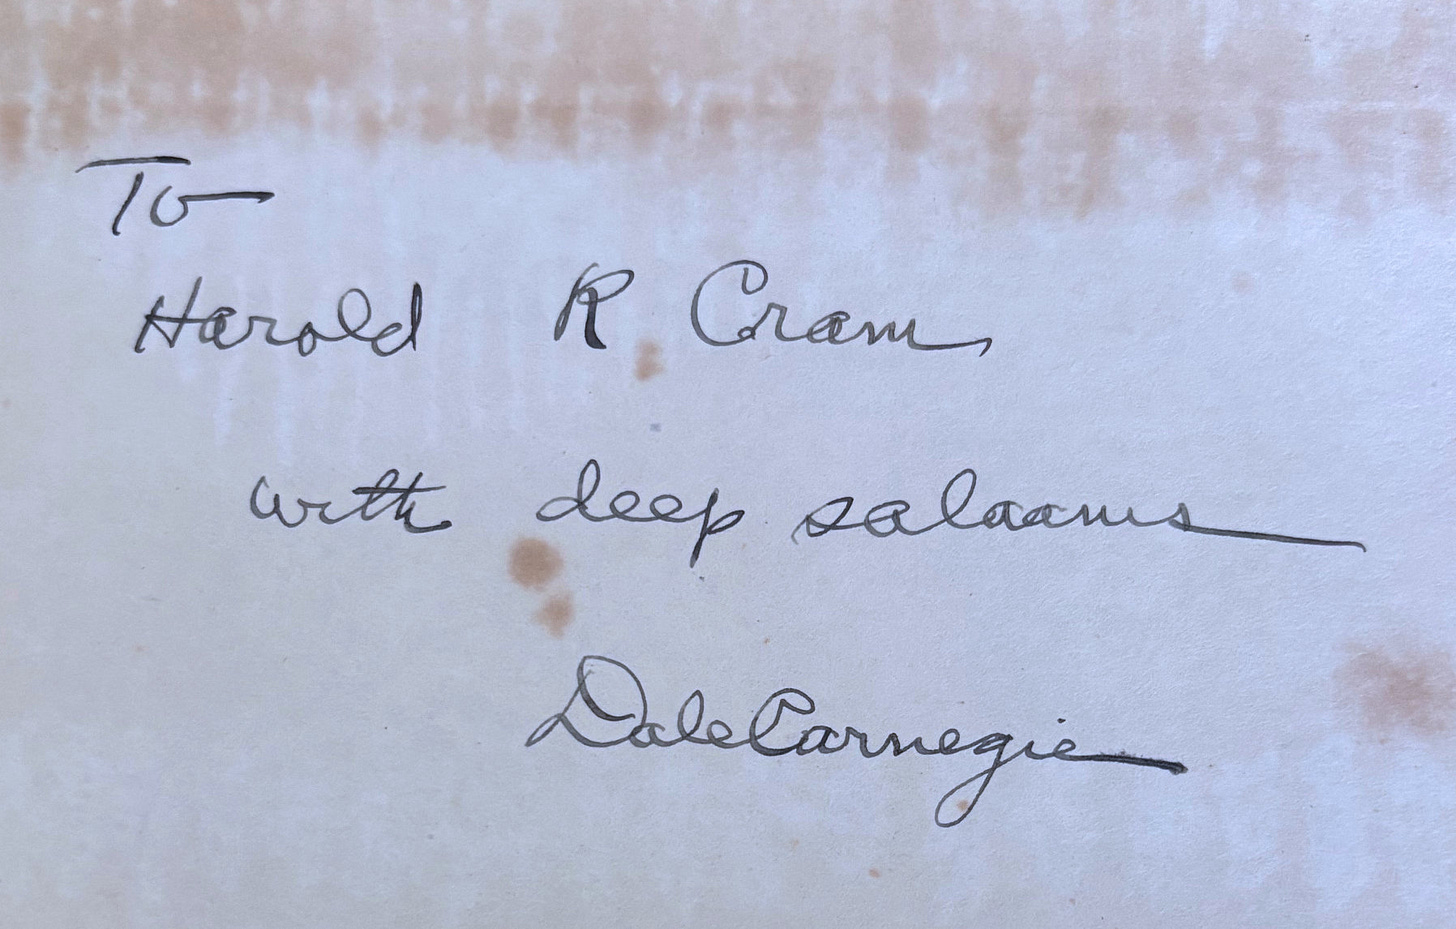 To
Harold R Cram
with deep salaams
Dale Carnegie